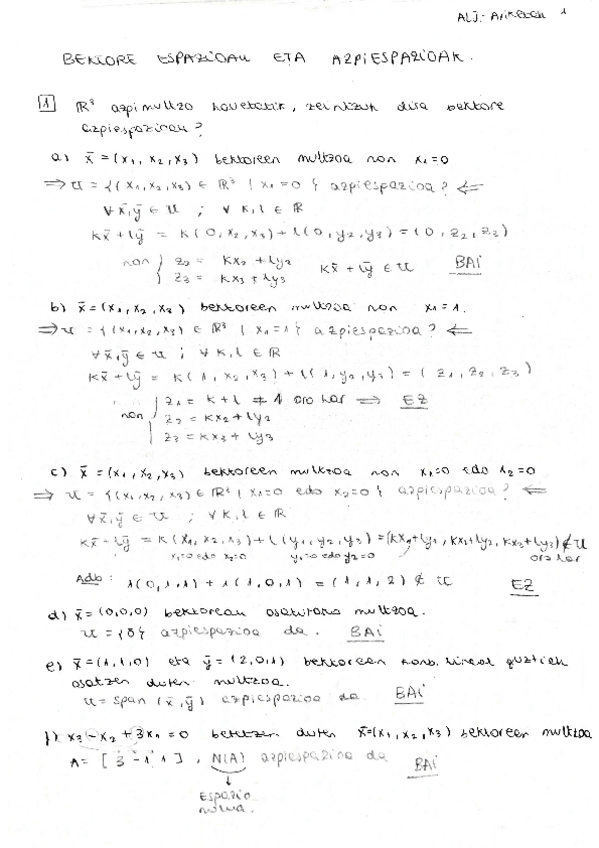 ALJ.- Ariketak 1
BEKTORE ESPAZIOAK ETA AZPIESPAZIOAK.
1 ℝ³ azpimultzo hauetatik, zeintzuk dira bektore
azpiespazioak?
a) x̄ = (x₁, x₂, x₃) bektoreen multzoa non x₁=0
⇒ U = {(x₁, x₂, x₃) ∈ ℝ³ | x₁=0} azpiespazioa? ⇐
∀ x̄,ȳ ∈ U ; ∀ k, l ∈ ℝ
kx̄ + lȳ = k(0, x₂, x₃) + l(0, y₂, y₃) = (0, z₂, z₃)
non { z₂ = kx₂ + ly₂
z₃ = kx₃ + ly₃ kx̄ + lȳ ∈ U BAI
b) x̄ = (x₁, x₂, x₃) bektoreen multzoa non x₁=1.
⇒ U = {(x₁, x₂, x₃) ∈ ℝ³ | x₁=1} azpiespazioa? ⇐
∀ x̄,ȳ ∈ U ; ∀ k, l ∈ ℝ
kx̄ + lȳ = k(1, x₂, x₃) + l(1, y₂, y₃) = (z₁, z₂, z₃)
z₁ = k + l ≠ 1 oro har ⇒ EZ
non { z₂ = kx₂ + ly₂
z₃ = kx₃ + ly₃
c) x̄ = (x₁, x₂, x₃) bektoreen multzoa non x₁=0 edo x₂=0
⇒ U = {(x₁, x₂, x₃) ∈ ℝ³ | x₁=0 edo x₂=0} azpiespazioa? ⇐
∀ x̄,ȳ ∈ U ; ∀ k, l ∈ ℝ
kx̄ + lȳ = k(x₁, x₂, x₃) + l(y₁, y₂, y₃) = (kx₁+ly₁, kx₂+ly₂, kx₃+ly₃) ∉ U
x₁=0 edo x₂=0 y₁=0 edo y₂=0 oro har
Adb: 1(0,1,1) + 1(1,0,1) = (1,1,2) ∉ U EZ
d) x̄ = (0,0,0) bektoreaz osatutako multzoa.
U = {0̄} azpiespazioa da. BAI
e) x̄ = (1,1,0) eta ȳ = (2,0,1) bektoreen konb. lineal guztiek
osatzen duten multzoa.
U = span (x̄, ȳ) azpiespazioa da BAI
f) x₃ - x₂ + 3x₁ = 0 betetzen duten x̄=(x₁, x₂, x₃) bektoreen multzoa
A = [3 -1 1], N(A) azpiespazioa da BAI
↓
Espazio
nulua.